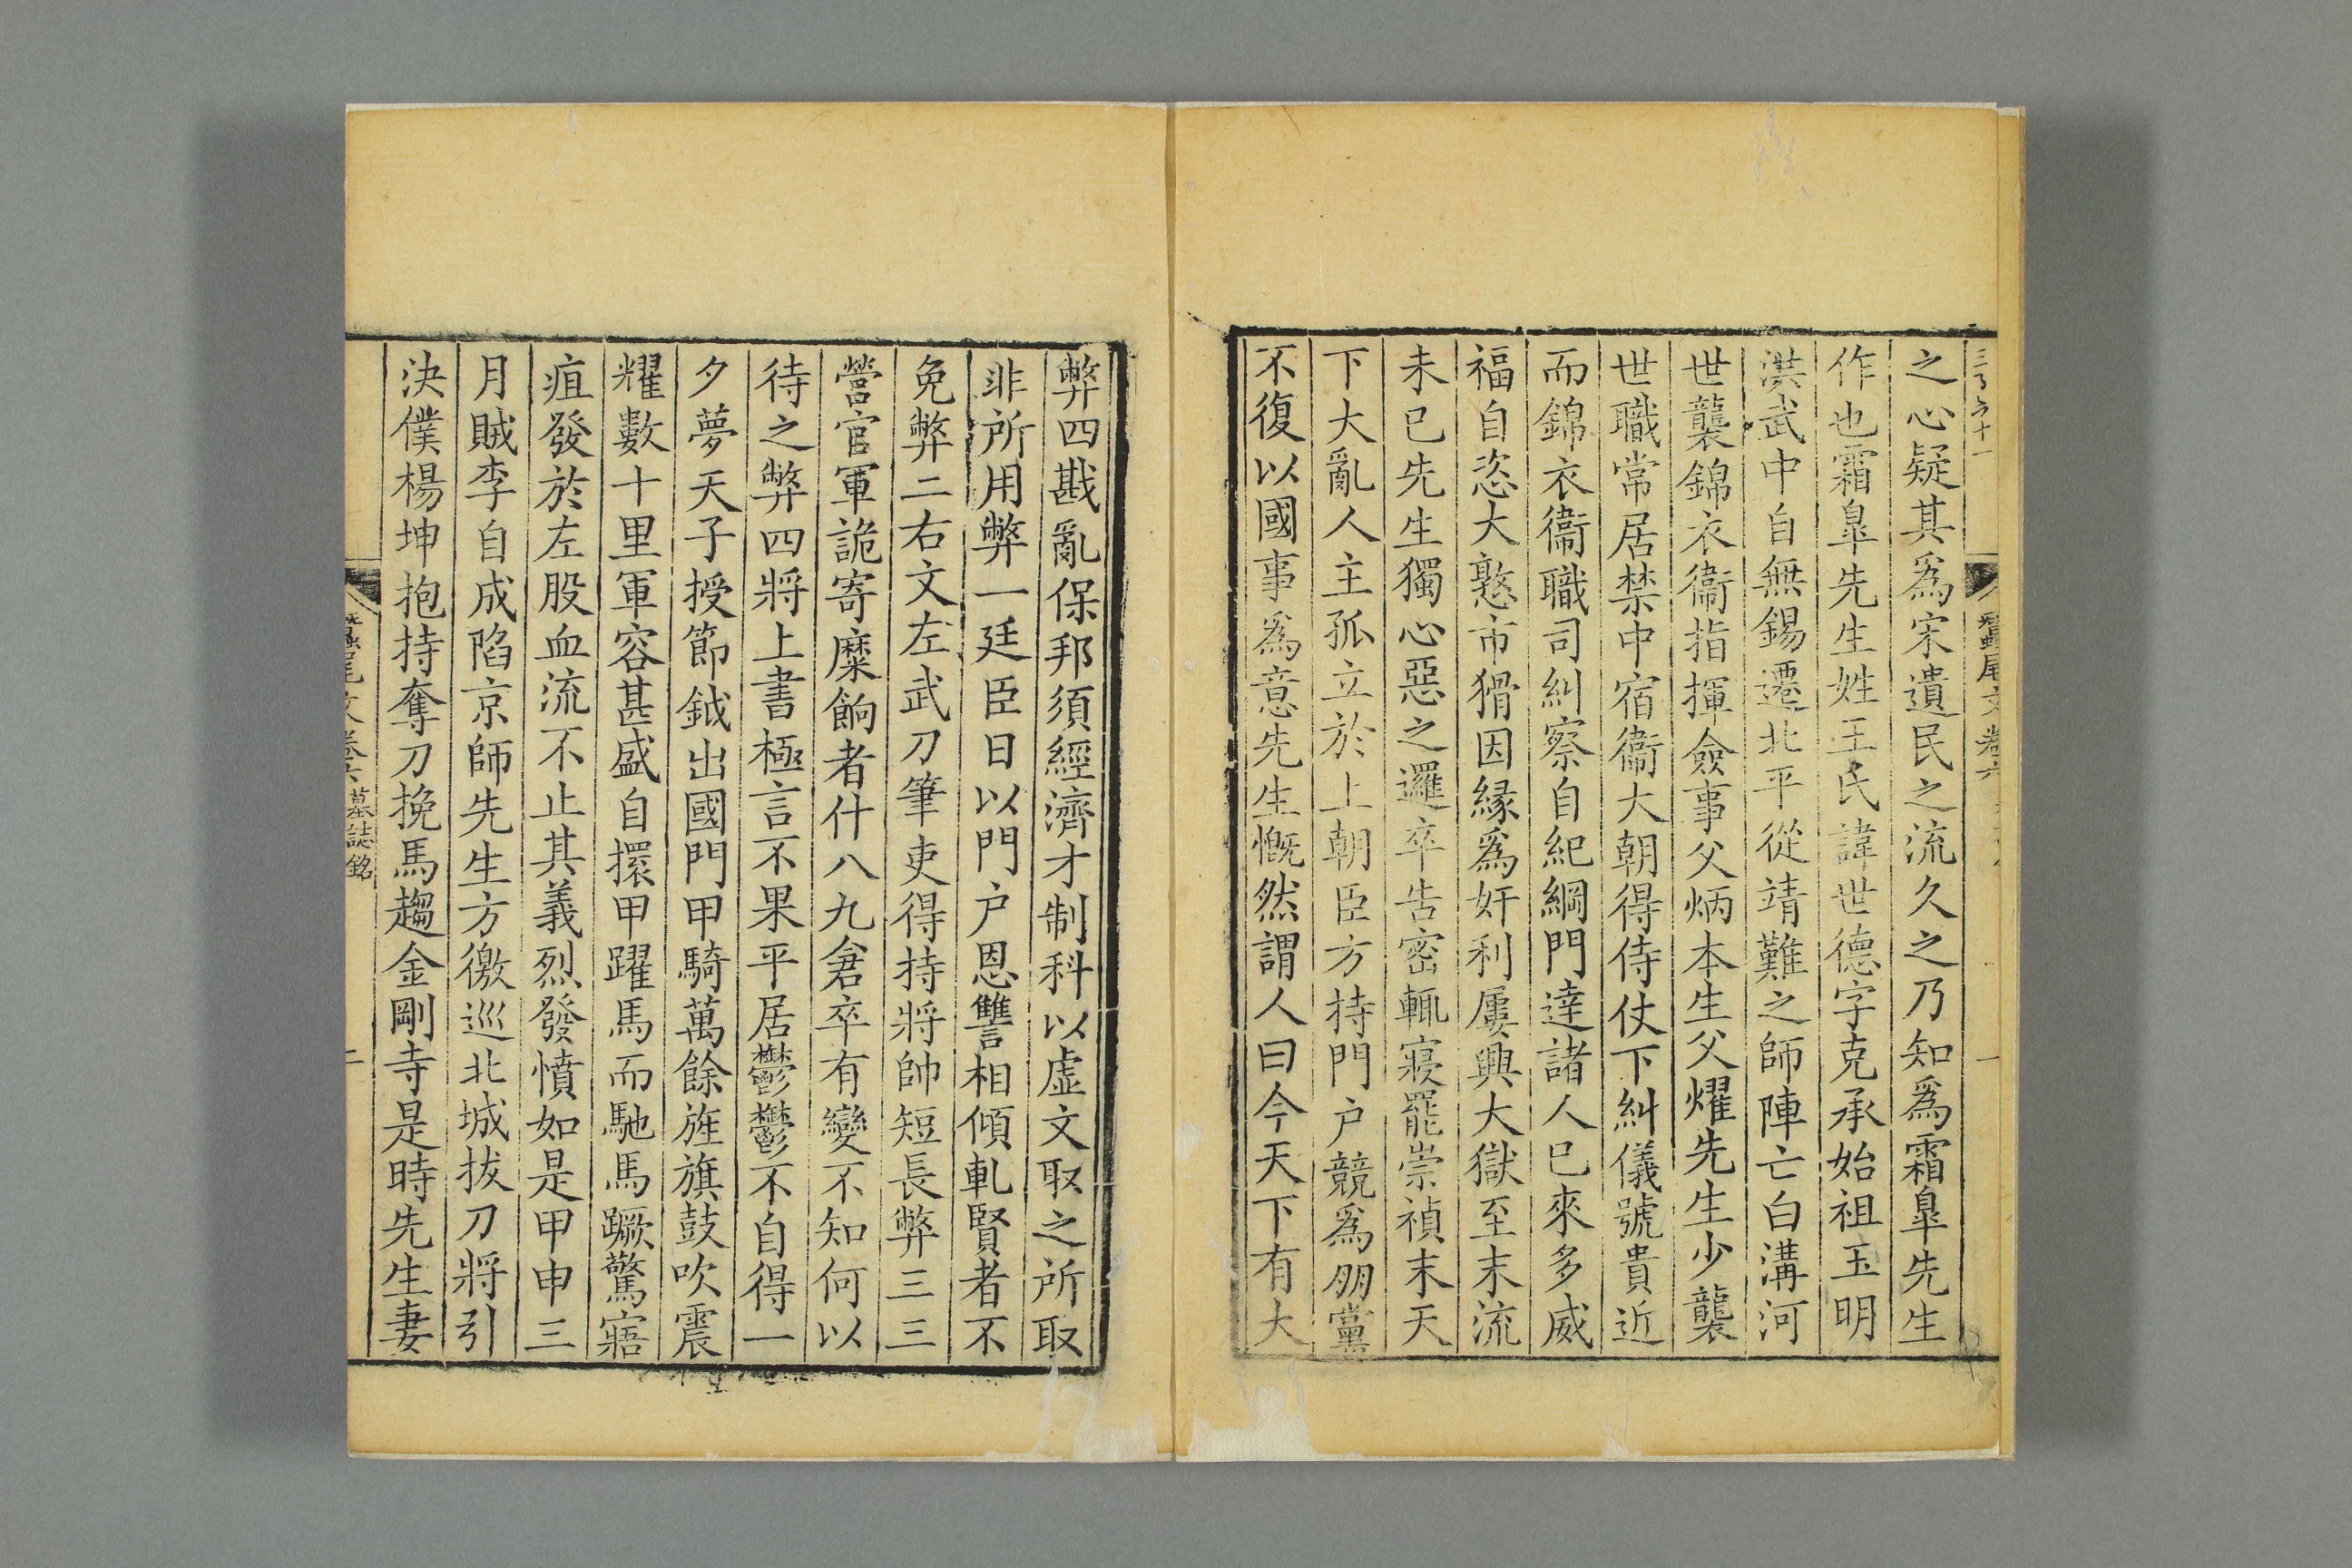 之心疑其爲宋遺民之流久之乃知爲霜臯先生
作也霜臯先生姓王氏諱世德字克承始祖玉明
洪武中自無錫遷北平從靖難之師陣亡白溝河
世襲錦衣衞指揮僉事父炳本生父燿先生少襲
世職常居禁中宿衞大朝得侍仗下糾儀號貴近
而錦衣衞職司糾察自紀綱門達諸人已來多威
福自恣大憝市猾因緣爲奸利屢興大獄至末流
未已先生獨心惡之邏卒告密輒寢罷崇禎末天
下大亂人主孤立於上朝臣方持門户競爲朋黨
不復以國事爲意先生慨然謂人曰今天下有大
弊四戡亂保邦須經濟才制科以虛文取之所取
非所用弊一廷臣日以門户恩讐相傾軋賢者不
免弊二右文左武刀筆吏得持將帥短長弊三三
營官軍詭寄糜餉者什八九倉卒有變不知何以
待之弊四將上書極言不果平居鬱鬱不自得一
夕夢天子授節鉞出國門甲騎萬餘旌旗鼓吹震
耀數十里軍容甚盛自擐甲躍馬而馳馬蹶驚寤
疽發於左股血流不止其義烈發憤如是甲申三
月賊李自成陷京師先生方徼巡北城拔刀將引
決僕楊坤抱持奪刀挽馬趨金剛寺是時先生妻
蠶尾文卷六 墓誌銘 二